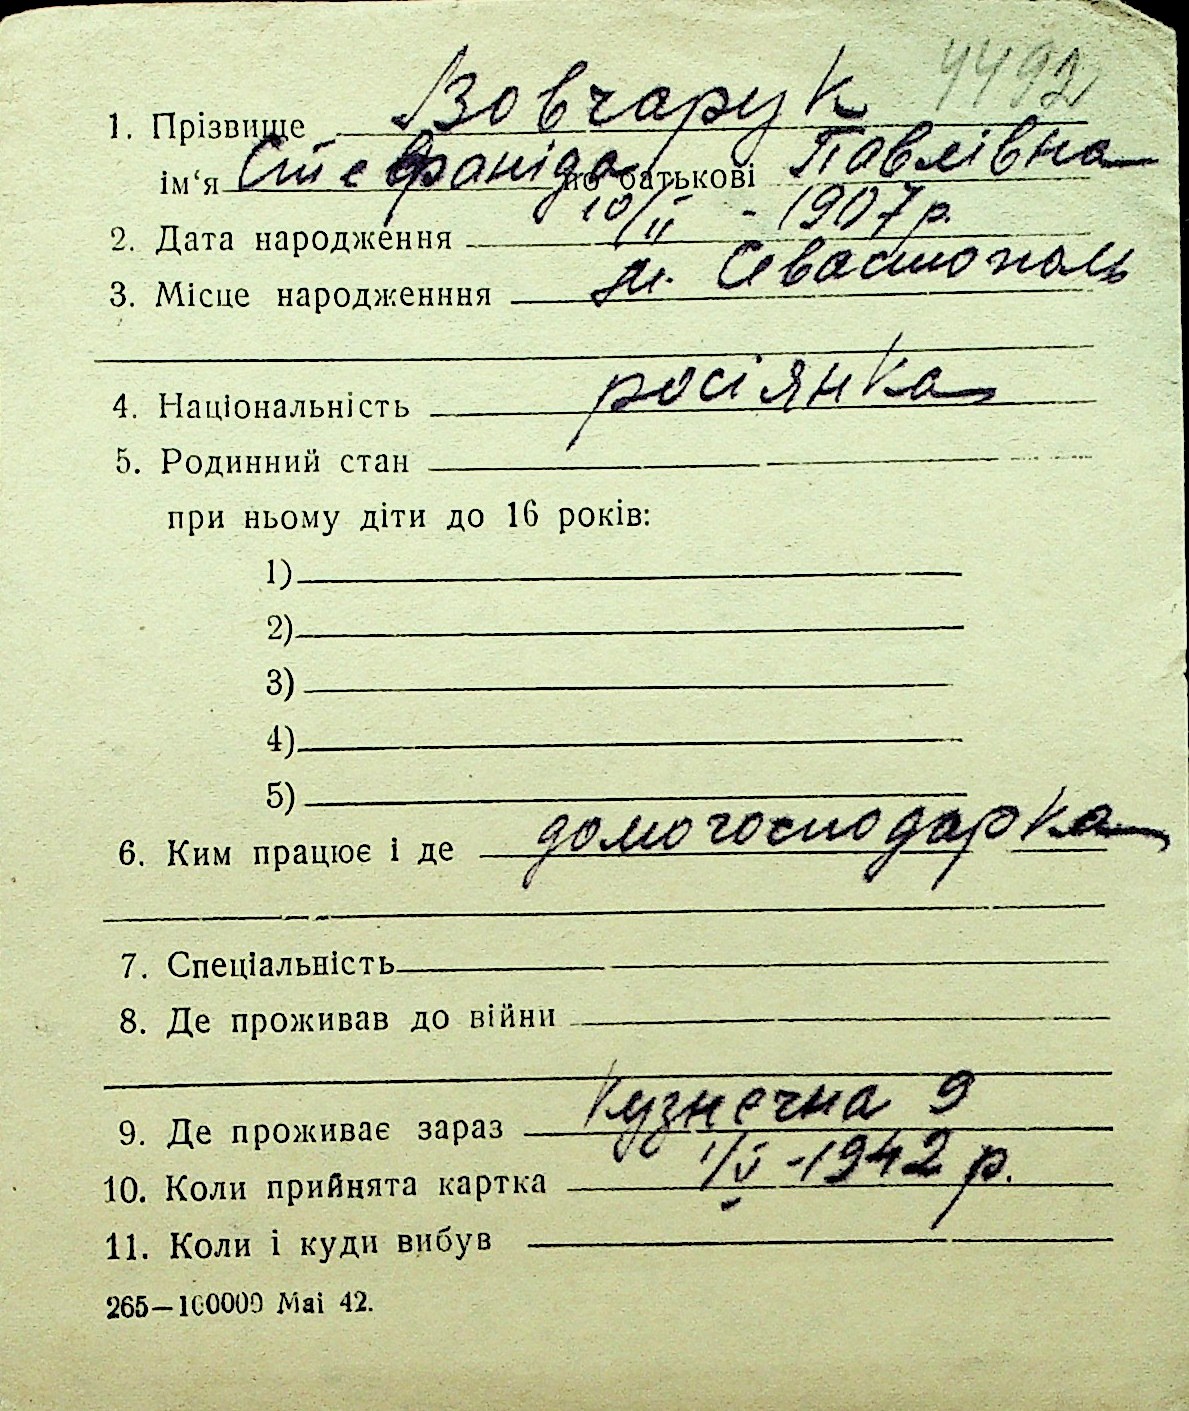 4492
1. Прізвище Вовчарук
ім‘я Стефаніда по батькові Павлівна
2. Дата народження 10/II - 1907 р.
3. Місце народженння м. Севастополь
4. Національність росіянка
5. Родинний стан
при ньому діти до 16 років:
1)
2)
3)
4)
5)
6. Ким працює і де домогосподарка
7. Спеціальність
8. Де проживав до війни
9. Де проживає зараз Кузнечна 9
10. Коли прийнята картка 1/V - 1942 р.
11. Коли і куди вибув
265—100000 Маі 42.